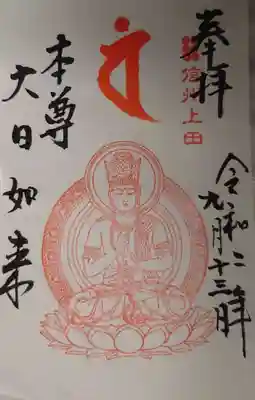 奉拝
信州上田
令和二年
九月十三日
本尊
大日如来